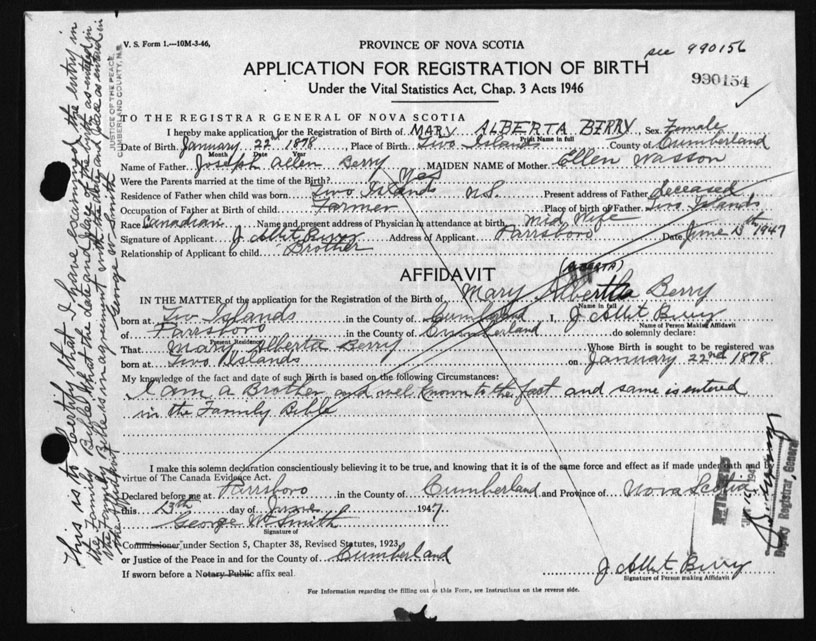 V. S. Form 1.—10M-3-46,
PROVINCE OF NOVA SCOTIA
see 990156
APPLICATION FOR REGISTRATION OF BIRTH
990154
Under the Vital Statistics Act, Chap. 3 Acts 1946
TO THE REGISTRAR GENERAL OF NOVA SCOTIA
I hereby make application for the Registration of Birth of MARY ALBERTA BERRY, Sex Female
Print Name in full
Date of Birth January 22nd 1878 Place of Birth Two Islands County of Cumberland
Month Date Year
Name of Father Joseph Allen Berry MAIDEN NAME of Mother Ellen Wasson
Were the Parents married at the time of the Birth? Yes
Residence of Father when child was born Two Islands N.S. Present address of Father deceased
Occupation of Father at Birth of child Farmer Place of birth of Father Two Islands
Race Canadian Name and present address of Physician in attendance at birth Mid Wife
Signature of Applicant J Allit Berry Address of Applicant Parrsboro Date June 13th 1947
Relationship of Applicant to child Brother
AFFIDAVIT
(ALBERTA)
IN THE MATTER of the application for the Registration of the Birth of Mary Albertha Berry
Name in full
born at Two Islands in the County of Cumberland I, J Allit Berry
Name of Person Making Affidavit
of Parrsboro in the County of Cumberland do solemnly declare:
Present Residence
That Mary Alberta Berry Whose Birth is sought to be registered was
born at Two Islands on January 22nd 1878
My knowledge of the fact and date of such Birth is based on the following Circumstances:
I am a Brother and well known to the fact and same is entered
in the Family Bible
I make this solemn declaration conscientiously believing it to be true, and knowing that it is of the same force and effect as if made under oath and by
virtue of The Canada Evidence Act.
Declared before me at Parrsboro in the County of Cumberland and Province of Nova Scotia
this 13th day of June 1947
George W Smith
Signature of
Commissioner under Section 5, Chapter 38, Revised Statutes, 1923,
or Justice of the Peace in and for the County of Cumberland
If sworn before a Notary Public affix seal
J Allit Berry
Signature of Person making Affidavit
For Information regarding the filling out of this Form, see Instructions on the reverse side.
This is to certify that I have examined the entry in
the Family Bible that the date and place of birth as entered in
the Family Bible is in agreement with the date and place as entered in
the affidavit
George W Smith
JUSTICE OF THE PEACE
CUMBERLAND COUNTY, N.S.
Deputy Registrar General